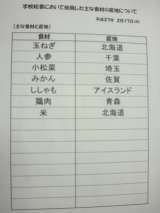 学校給食において使用した主な食材の産地について
平成27年 2月10日(火)
(主な食材の産地)
食材 産地
玉ねぎ 北海道
人参 千葉
小松菜 埼玉
みかん 佐賀
ししゃも アイスランド
鶏肉 青森
米 北海道